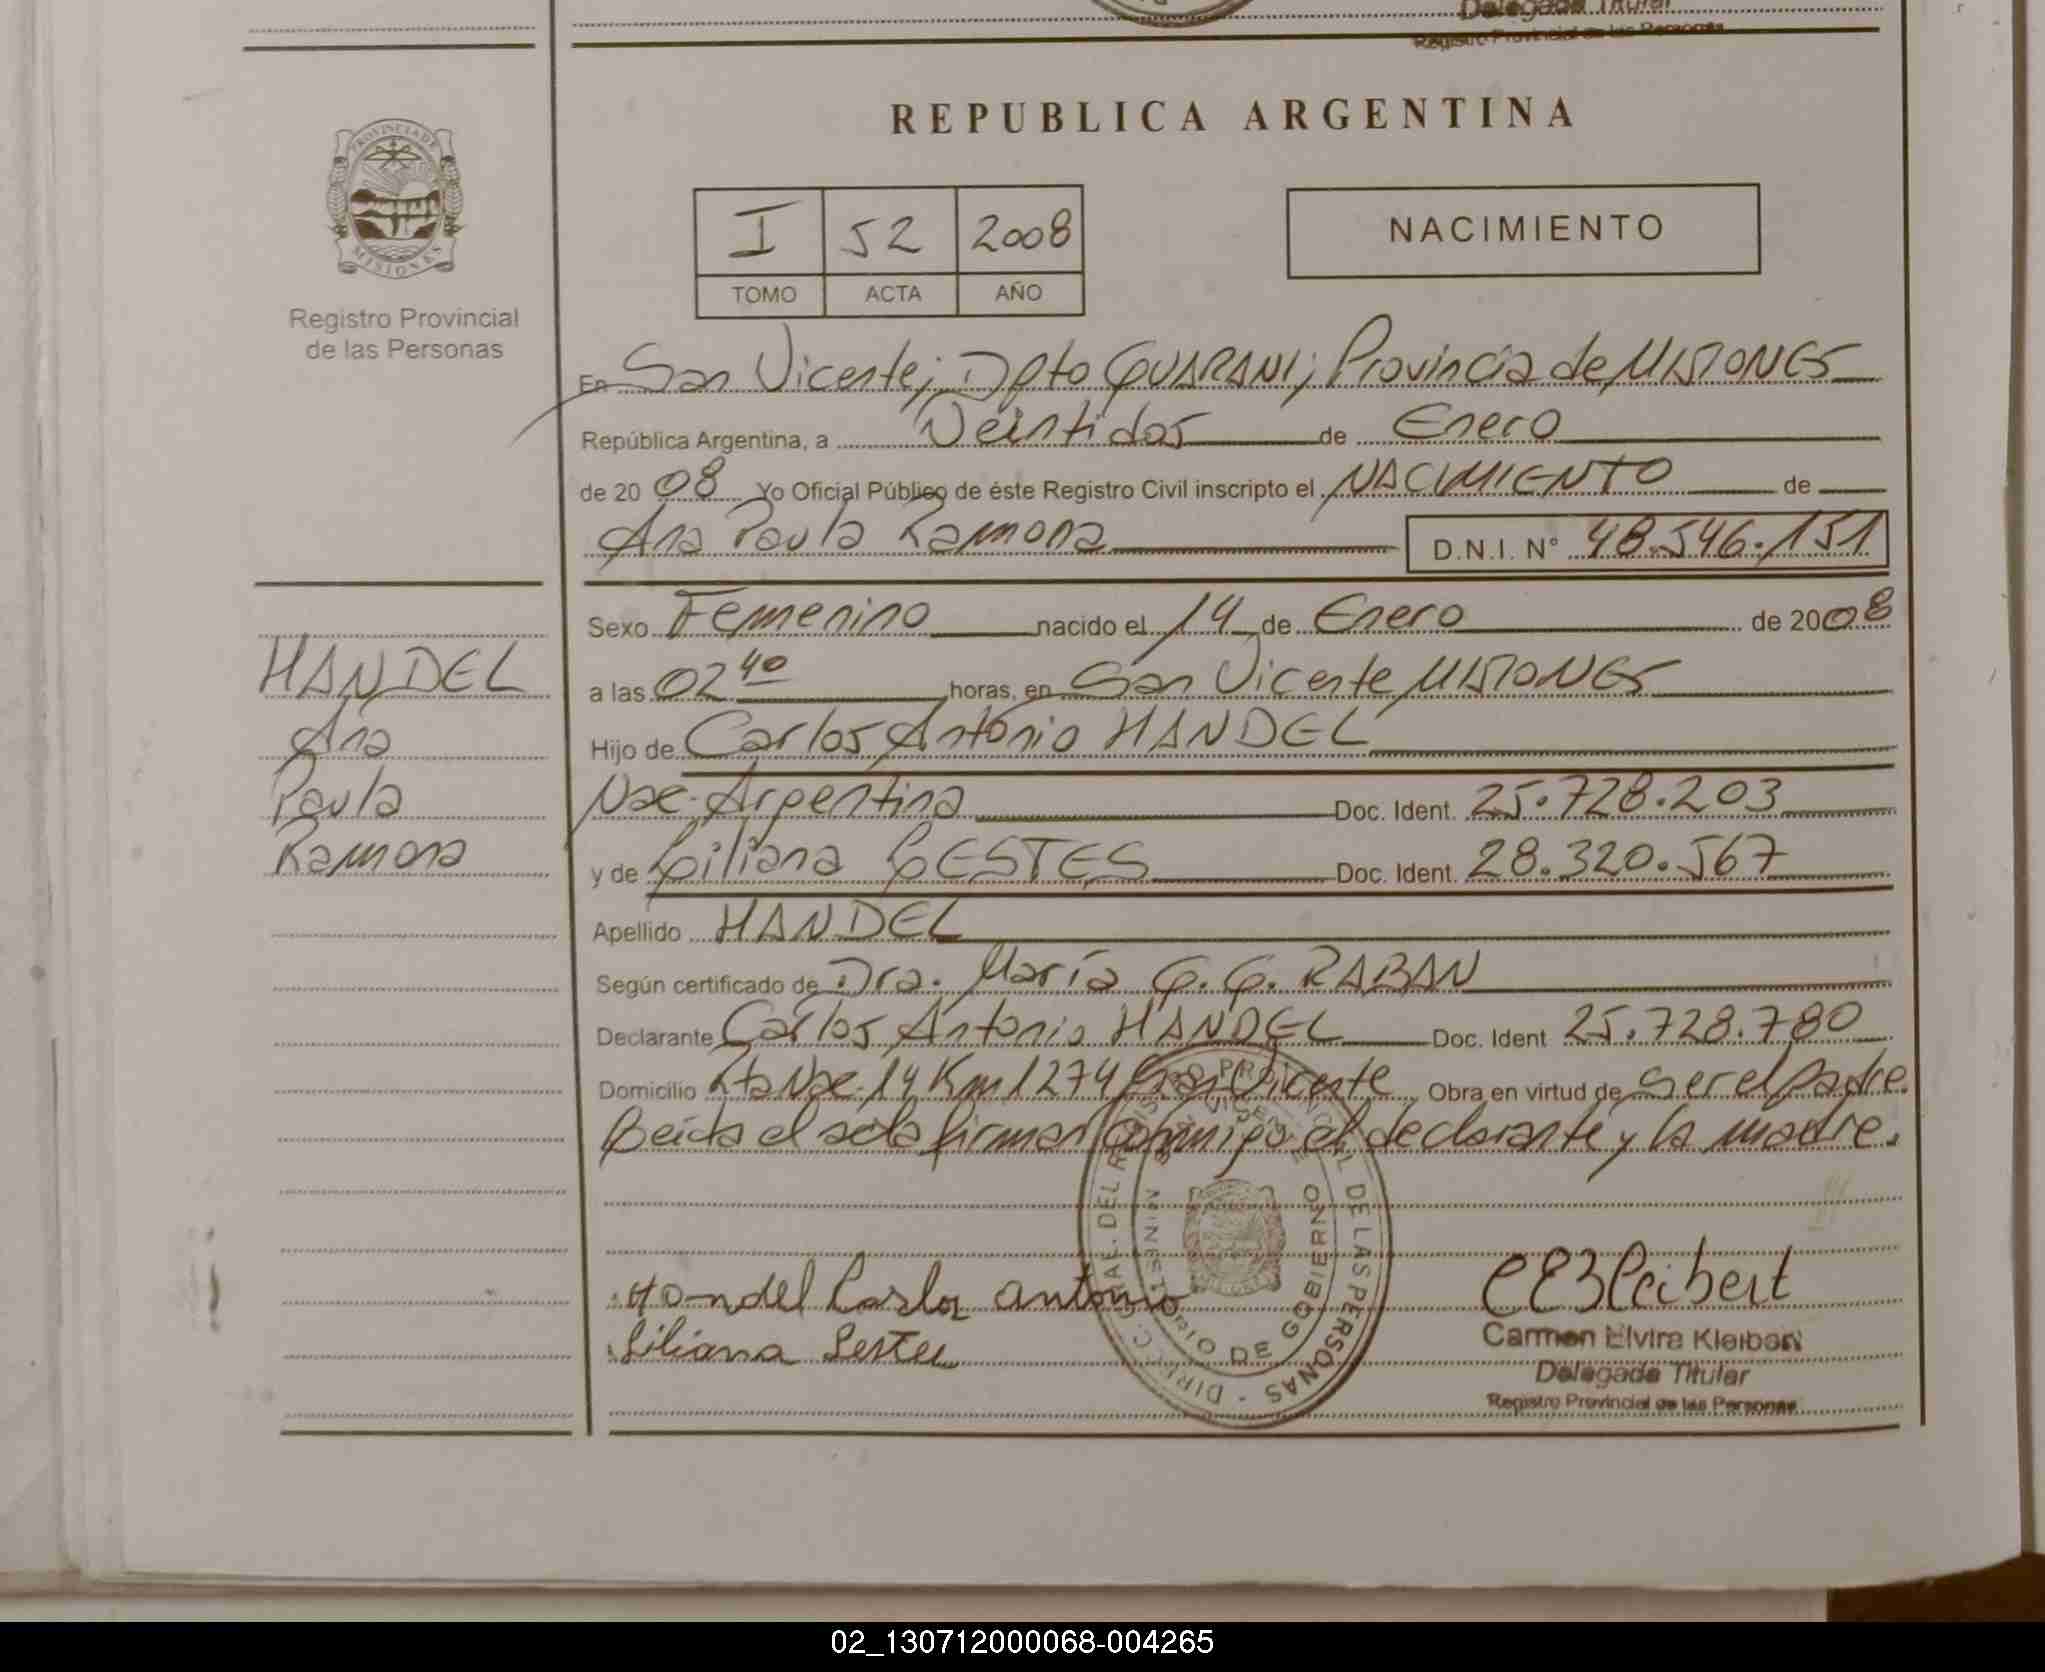 Delegada Titular
Registro Provincial de las Personas
REPUBLICA ARGENTINA
PROVINCIA DE
MISIONES
Registro Provincial
de las Personas
I 52 2008
TOMO ACTA AÑO
NACIMIENTO
En San Vicente; Dpto GUARANI; Provincia de MISIONES
República Argentina, a Veintidos de Enero
de 2008 Yo Oficial Público de éste Registro Civil inscripto el NACIMIENTO de
Ana Paula Ramona D.N.I. N° 48.546.151
Sexo Femenino nacido el 14 de Enero de 2008
a las 02 40 horas, en San Vicente MISIONES
Hijo de Carlos Antonio HANDEL
Nac. Argentina Doc. Ident. 25.728.203
y de Liliana LESTES Doc. Ident. 28.320.567
Apellido HANDEL
Según certificado de Dra. María G. G. RABAN
Declarante Carlos Antonio HANDEL Doc. Ident 25.728.780
Domicilio Rta Nac. 14 Km 1274 San Vicente Obra en virtud de ser el padre.
Leída el acta firman conmigo el declarante y la madre.
HANDEL
Ana
Paula
Ramona
DIRECC. GRAL. DEL REGISTRO PROVINCIAL DE LAS PERSONAS
SAN VICENTE
MINISTERIO DE GOBIERNO
Handel Carlos antonio
Liliana Lestes
CEKleibert
Carmen Elvira Kleibert
Delegada Titular
Registro Provincial de las Personas
02_130712000068-004265